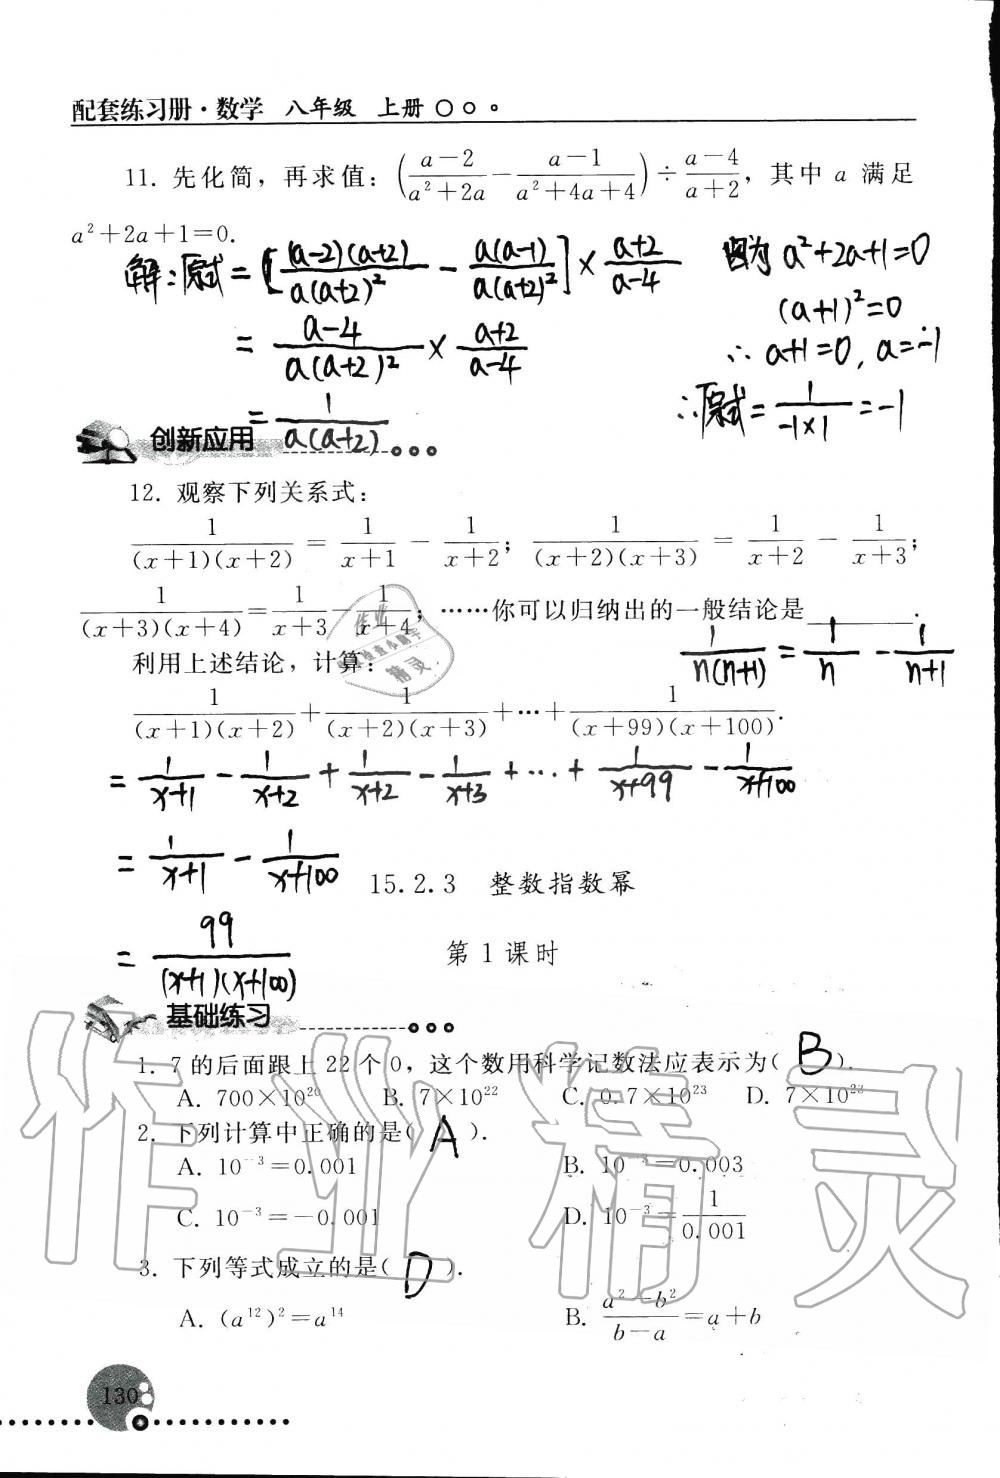 配套练习册·数学 八年级 上册
11. 先化简，再求值：((a-2)/(a²+2a) - (a-1)/(a²+4a+4)) ÷ (a-4)/(a+2)，其中 a 满足
a²+2a+1=0.
解:原式 = [(a-2)(a+2)/(a(a+2)²) - a(a-1)/(a(a+2)²)] × (a+2)/(a-4)
= (a-4)/(a(a+2)²) × (a+2)/(a-4)
= 1/(a(a+2))
因为 a²+2a+1=0
(a+1)²=0
∴ a+1=0, a=-1
∴原式 = 1/(-1×1) = -1
创新应用
12. 观察下列关系式：
1/((x+1)(x+2)) = 1/(x+1) - 1/(x+2); 1/((x+2)(x+3)) = 1/(x+2) - 1/(x+3);
1/((x+3)(x+4)) = 1/(x+3) - 1/(x+4); ……你可以归纳出的一般结论是________.
1/(n(n+1)) = 1/n - 1/(n+1)
利用上述结论，计算：
1/((x+1)(x+2)) + 1/((x+2)(x+3)) + … + 1/((x+99)(x+100)).
= 1/(x+1) - 1/(x+2) + 1/(x+2) - 1/(x+3) + … + 1/(x+99) - 1/(x+100)
= 1/(x+1) - 1/(x+100)
= 99/((x+1)(x+100))
15.2.3 整数指数幂
第 1 课时
基础练习
1. 7 的后面跟上 22 个 0，这个数用科学记数法应表示为( B ).
A. 700×10²⁰ B. 7×10²² C. 0.7×10²³ D. 7×10²³
2. 下列计算中正确的是( A ).
A. 10⁻³=0.001 B. 10⁻³=0.003
C. 10⁻³=-0.001 D. 10⁻³=1/0.001
3. 下列等式成立的是( D ).
A. (a¹²)²=a¹⁴ B. (a²-b²)/(b-a)=a+b
130
作业精灵